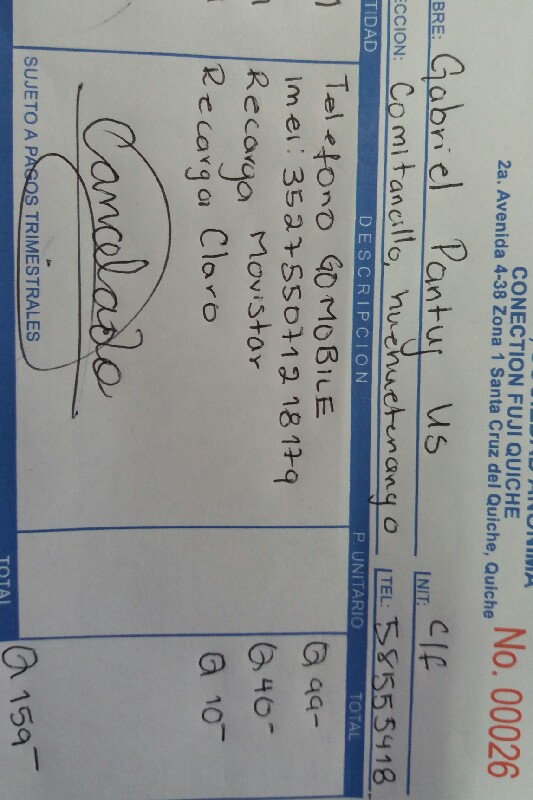 CONECTION FUJI QUICHE
2a. Avenida 4-38 Zona 1 Santa Cruz del Quiche, Quiche
No. 00026
BRE: Gabriel Pantuy Us NIT: C/f
ECCION: Comitancillo, huehuetenango TEL: 58555418
TIDAD DESCRIPCION P. UNITARIO TOTAL
Telefono GOMOBILE Q 99-
imei: 352755071218179
Recarga Movistar Q 40-
Recarga Claro Q 10-
Cancelado
SUJETO A PAGOS TRIMESTRALES
TOTAL Q 159-